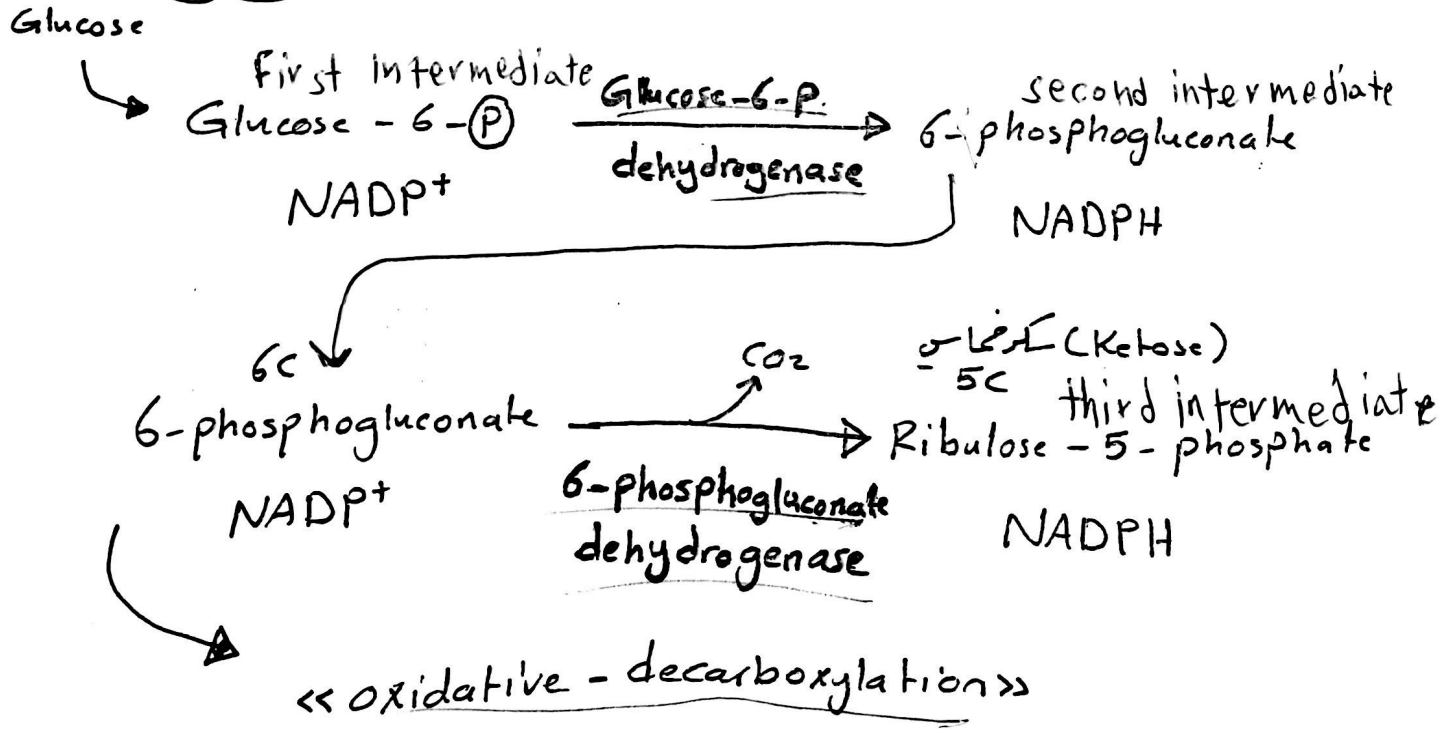 Glucose
First intermediate
Glucose - 6 - P
NADP+
Glucose-6-P.
dehydrogenase
second intermediate
6-phosphogluconate
NADPH
6C
6-phosphogluconate
NADP+
CO2
6-phosphogluconate
dehydrogenase
سكر خماسي (Ketose)
5C
third intermediate
Ribulose - 5 - phosphate
NADPH
<< oxidative - decarboxylation >>